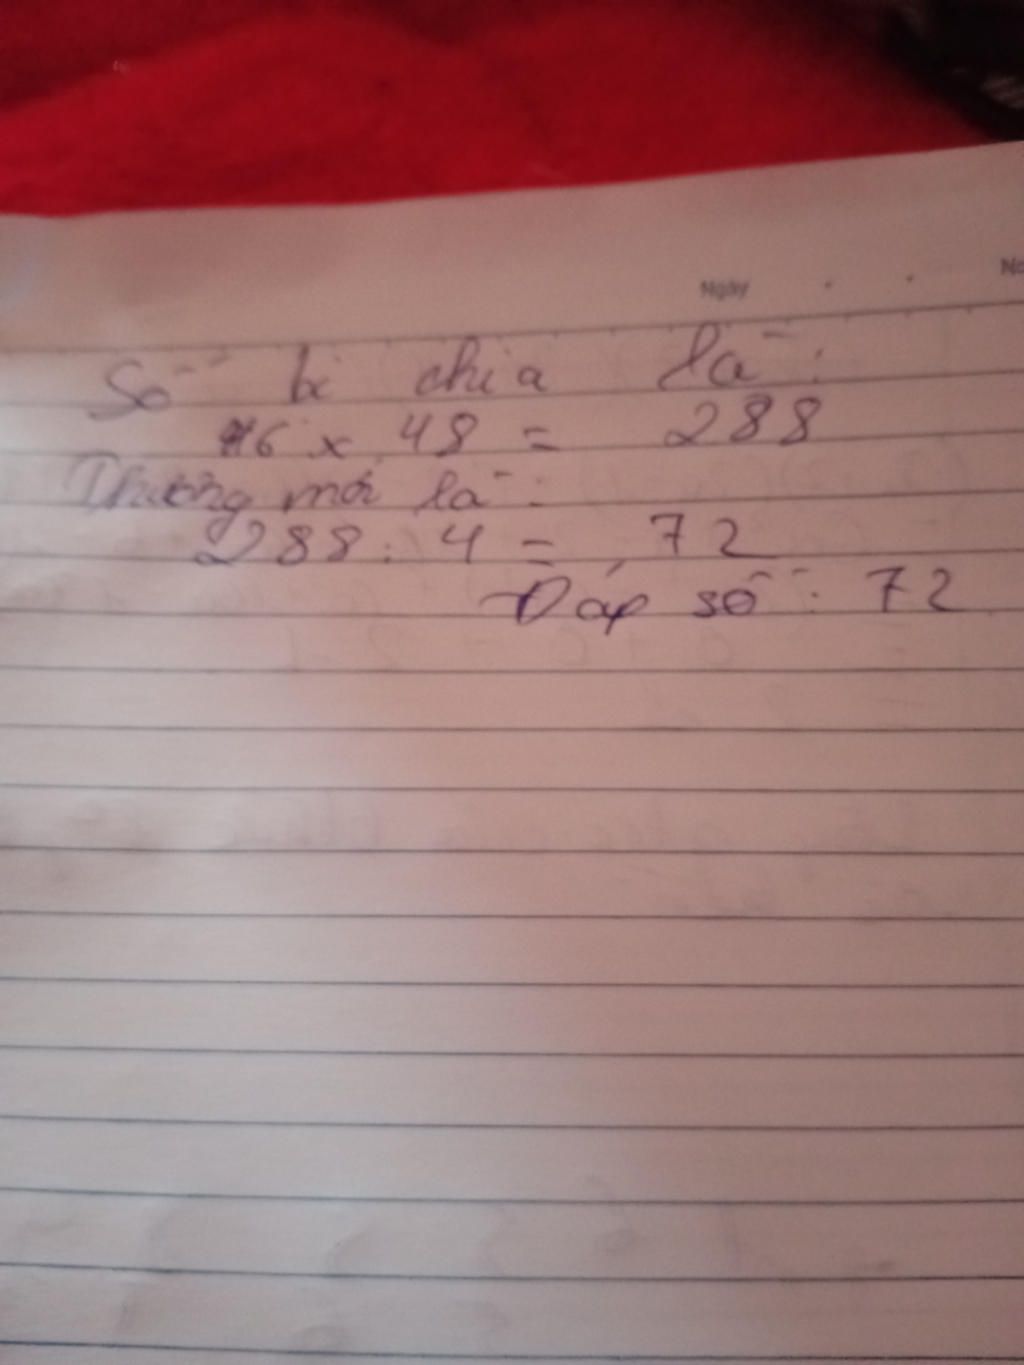 Ngày
No
Số bị chia là:
6 x 48 = 288
Thương mới là:
288 : 4 = 72
Đáp số: 72